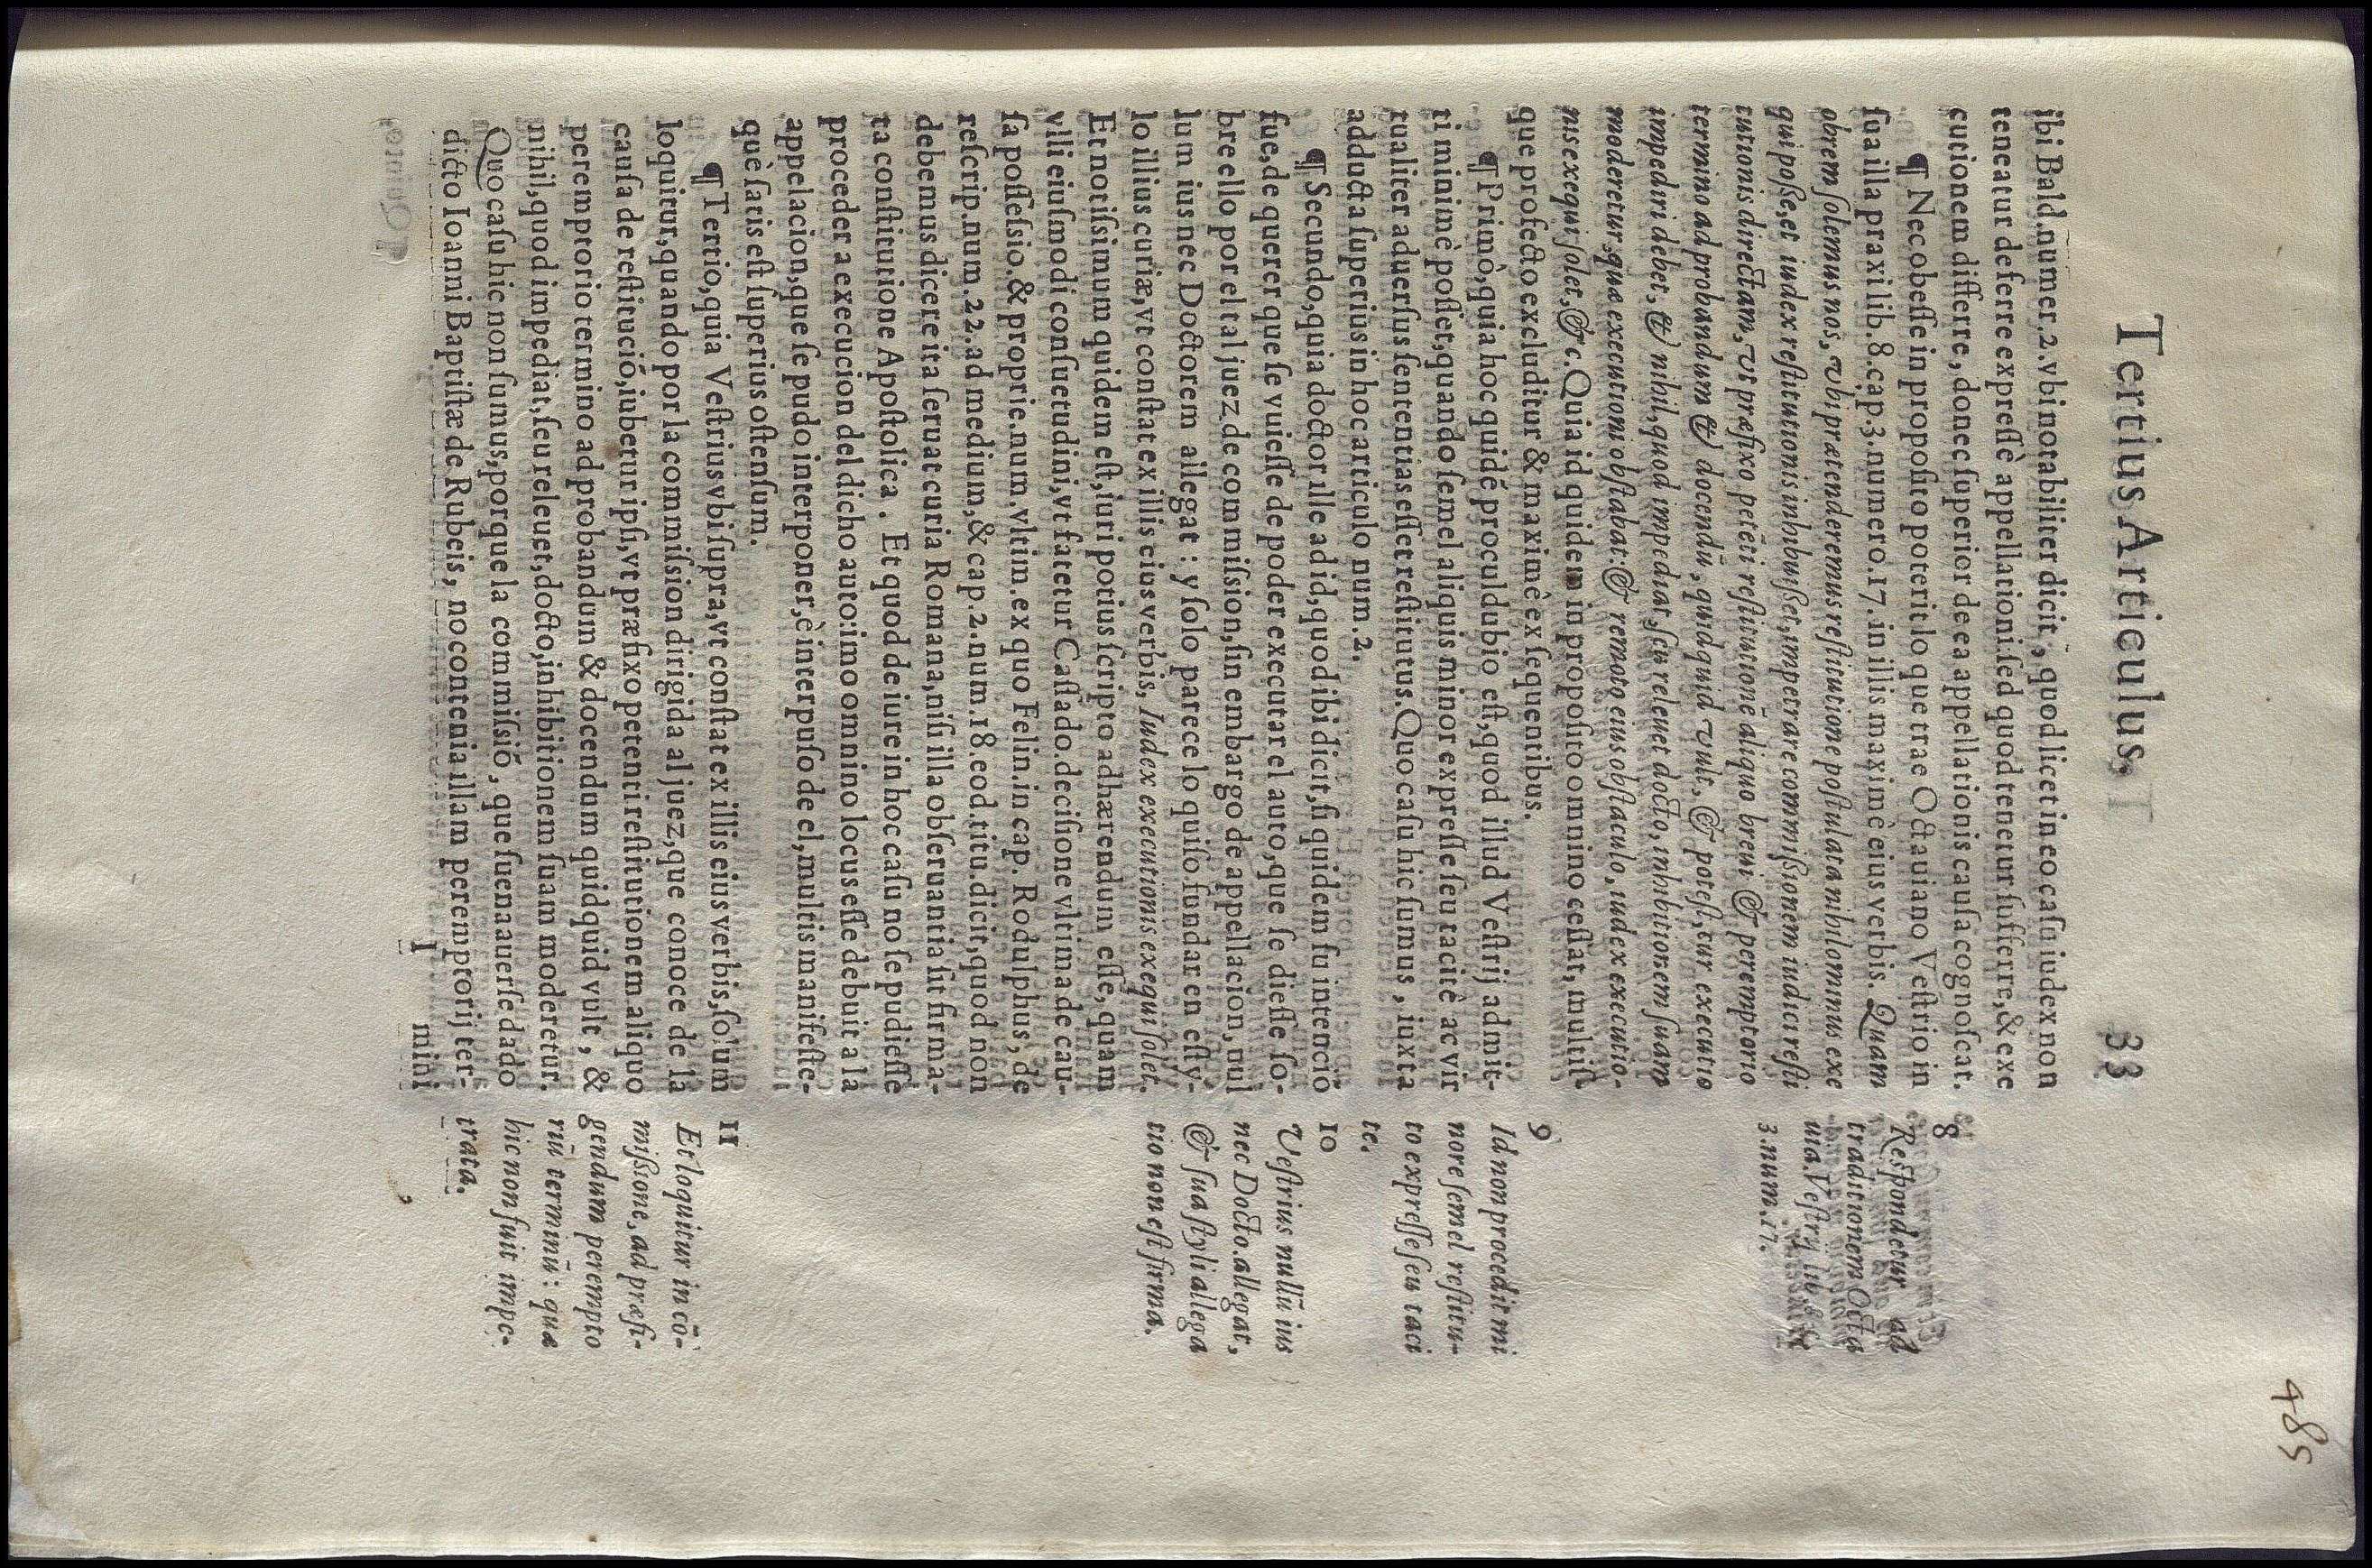 485
Tertius Articulus. 33
ibi Bald. numer. 2. vbi notabiliter dicit, quod licet in eo casu iudex non
teneatur deferre expressè appellationi. sed quod tenetur sufferre, & exe
cutionem differre, donec superior de ea appellationis causa cognoscat.
¶ Nec obesse in proposito poterit lo que trae Octauiano Vestrio in
sua illa praxi lib. 8. cap. 3. numero. 17. in illis maximè eius verbis. Quam
obrem solemus nos, vbi prætenderemus restitutione postulata nihilominus exe
qui posse, et iudex restitutionis inhibuisset, impetrare commissionem iudici resti
tutionis directam, vt præfixo petēti restitutionē aliquo breui & peremptorio
termino ad probandum & docendū, quidquid vult, & potest, cur executio
impediri debet, & nihil, quod impediat, seu releuet docto, inhibitionem suam
moderetur, quæ executioni obstabat: & remoto eius obstaculo, iudex executio-
nis exequi solet, &c. Quia id quidem in proposito omnino cessat, multis
que profecto excluditur & maximè ex sequentibus.
¶ Primò, quia hoc quidē proculdubio est, quod illud Vestrij admit-
ti minimè posset, quando semel aliquis minor expresse seu tacitè ac vir
tualiter aduersus sententias esset restitutus. Quo casu hic sumus, iuxta
adducta superiùs in hoc articulo num. 2.
¶ Secundo, quia doctor ille ad id, quod ibi dicit, si quidem su intencio
fue, de querer que se vuiesse de poder executar el auto, que se diesse so-
bre ello por el tal juez, de commission, sin embargo de appellacion, nul
lum ius nec Doctorem allegat: y solo parece lo quiso fundar en esty-
lo illius curiæ, vt constat ex illis eius verbis, Iudex executionis exequi solet.
Et notissimum quidem est, iuri potius scripto adhærendum esse, quam
vlli eiusmodi consuetudini, vt fatetur Cassado. decisione vltima de cau-
sa possessio. & proprie. num. vltim. ex quo Felin. in cap. Rodulphus, de
rescrip. num. 22. ad medium, & cap. 2. num. 18. eod. titu. dicit, quod non
debemus dicere ita seruat curia Romana, nisi illa obseruantia sit firma-
ta constitutione Apostolica. Et quod de iure in hoc casu no se pudiesse
proceder a execucion del dicho auto: imo omnino locus esse debuit a la
appelacion, que se pudo interponer, è interpuso de el, multis manifeste-
què satis est superius ostensum.
¶ Tertio, quia Vestrius vbi supra, vt constat ex illis eius verbis, solum
loquitur, quando por la commission dirigida al juez, que conoce de la
causa de restituciō, iubetur ipsi, vt præfixo petenti restitutionem aliquo
peremptorio termino ad probandum & docendum quidquid vult, &
nihil, quod impediat, seu releuet, docto, inhibitionem suam moderetur.
Quo casu hic non sumus, porque la commissiō, que suena auerse dado
dicto Ioanni Baptistæ de Rubeis, no contenia illam peremptorij ter-
I mini
8
Respondetur ad
traditionem Octa
uia. Vestrij lib. 8. c.
3. num. 17.
9
Id non procedit mi
nore semel restitu-
to expresse seu taci
te.
10
Vestrius nullū ius
nec Docto. allegat,
& sua styli allega
tio non est firma.
11
Et loquitur in cō-
missione, ad præfi-
gendum perempto
riū terminū: quæ
hic non fuit impe-
trata.